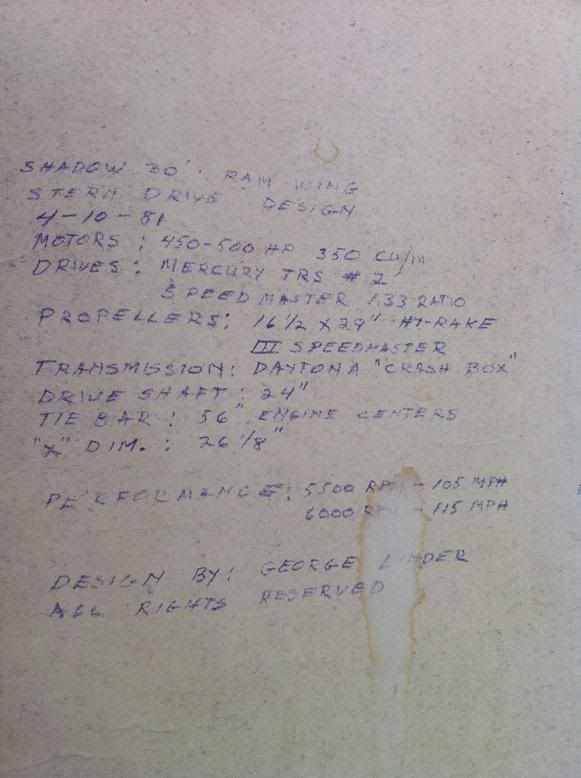 SHADOW 30' RAM WING
STERN DRIVE DESIGN
4-10-81
MOTORS: 450-500 HP 350 CU/IN
DRIVES: MERCURY TRS #2
SPEEDMASTER 1.33 RATIO
PROPELLERS: 16 1/2 X 29" HI-RAKE
III SPEEDMASTER
TRANSMISSION: DAYTONA "CRASH BOX"
DRIVE SHAFT: 24"
TIE BAR: 56" ENGINE CENTERS
"X" DIM.: 26 1/8"
PERFORMANCE: 5500 RPM - 105 MPH
6000 RPM - 115 MPH
DESIGN BY: GEORGE LINDER
ALL RIGHTS RESERVED